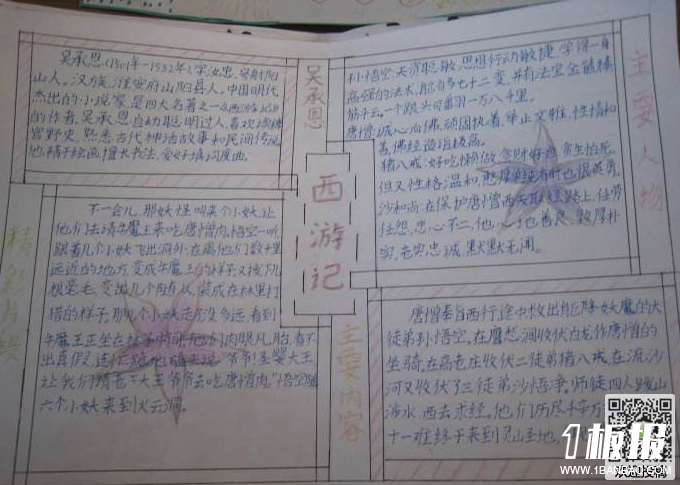 吴承恩
吴承恩(1501年-1582年),字汝忠,号射阳
山人。汉族,淮安府山阳县人。中国明代
杰出的小说家,是四大名著之一《西游记》
的作者,吴承恩自幼聪明过人,喜欢读稗
官野史,熟悉古代神话故事和民间传说
他精于绘画,擅长书法,爱好填词度曲。
西游记
主要人物
孙悟空:天资聪敏,思想行动敏捷,学得一身
高强的法术,
七十二变,
金箍棒
筋斗云。一个跟头可翻到一万八千里。
唐僧:诚心向佛,顽固执着,举止文雅,性情和
善,佛经造诣极高。
猪八戒:好吃懒做,贪财好色,贪生怕死,
但又性格温和,憨厚单纯,有时也很英勇。
沙和尚:在保护唐僧西天取经路上,任劳
任怨,忠心不二,他心地善良,敦厚朴
实,老实忠诚,默默无闻。
精彩片段
不一会儿,那妖怪叫来个小妖,让
他们去请牛魔王来吃唐僧肉,悟空一听
跟着几个小妖飞出洞外,在离他们数十里
远近的地方,变成牛魔王的样子,又拔下几
根毫毛,变出几个随从,装成在林里打
猎的样子,那几个小妖走了没多远,看到
牛魔王正坐在林
他们肉眼凡胎,看不
出真假,
爷爷!圣婴大王
让我们请老大王爷爷去吃唐僧肉。"悟空随
六个小妖来到火云洞。
主要内容
唐僧奉旨西行途中救出
降妖魔的大
徒弟孙悟空。在鹰愁涧收伏白龙作唐僧的
坐骑,在高老庄收伏二徒弟猪八戒,在流沙
河又收伏了三徒弟沙悟净。师徒四人跋山
涉水,西去求经。他们历尽千辛万
十一难终于来到灵山圣地
1板报
WWW.1BANBAO.COM
欢迎投稿